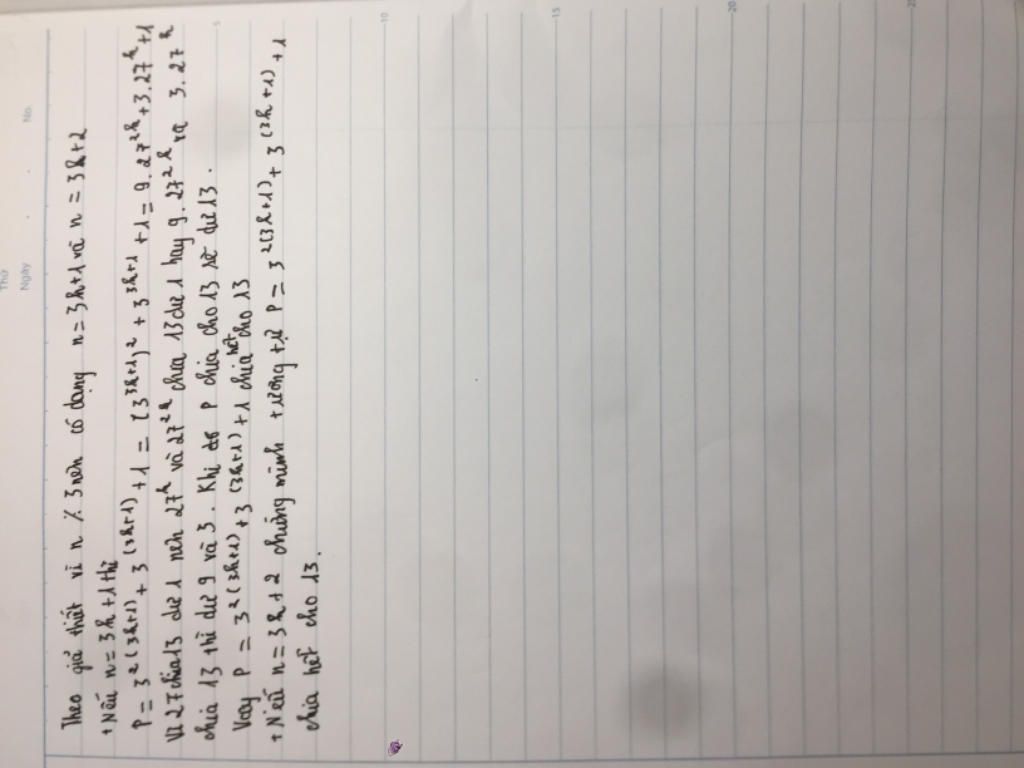 Thứ
Ngày . . No.
Theo giả thiết vì n ⋮̸ 3 nên có dạng n = 3k+1 và n = 3k+2
+ Nếu n = 3k+1 thì
P = 3^2(3k+1) + 3^(3k+1) + 1 = (3^3k+1)^2 + 3^3k+1 + 1 = 9.27^2k + 3.27^k + 1
Vì 27 chia 13 dư 1 nên 27^k và 27^2k chia 13 dư 1 hay 9.27^2k và 3.27^k
chia 13 thì dư 9 và 3. Khi đó P chia cho 13 sẽ dư 13.
Vay P = 3^2(3k+1) + 3^(3k+1) + 1 chia hết cho 13
+ Nếu n = 3k+2 chứng minh tương tự P = 3^2(3k+1) + 3^(3k+1) + 1
chia hết cho 13.
5
10
15
20
25